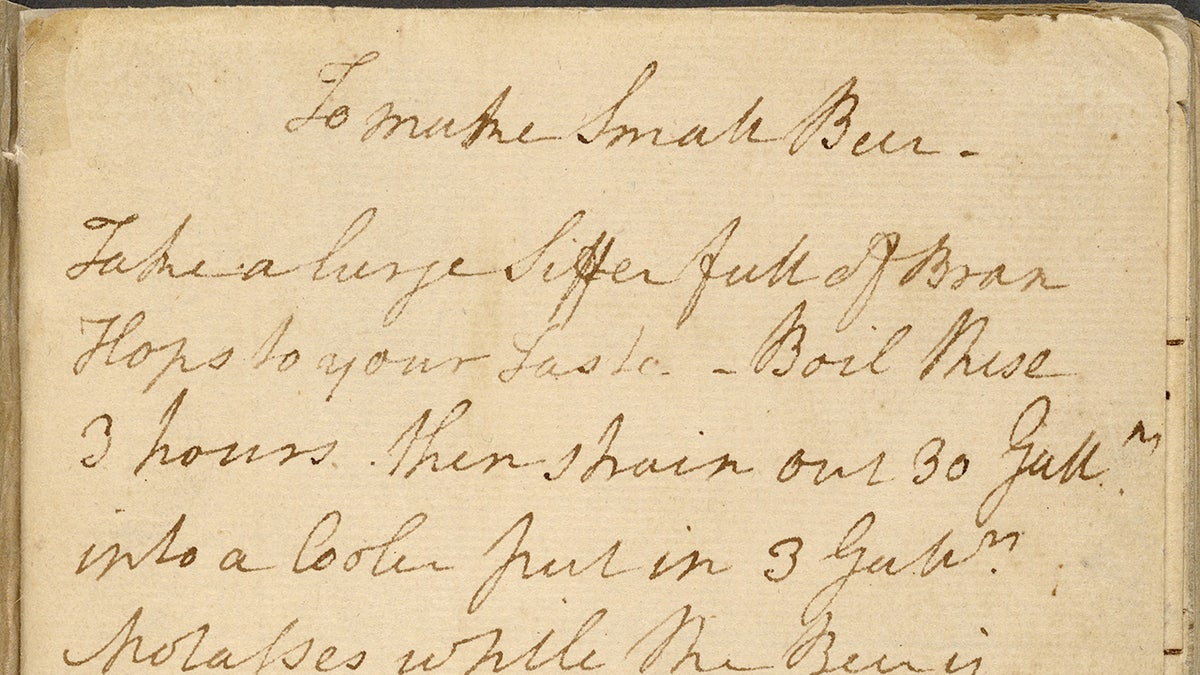 To make Small Beer -
Take a large Siffer full of Bran
Hops to your Taste. - Boil these
3 hours. then strain out 30 Gallns.
into a Cooler put in 3 Gallns.
Molasses while the Beer is